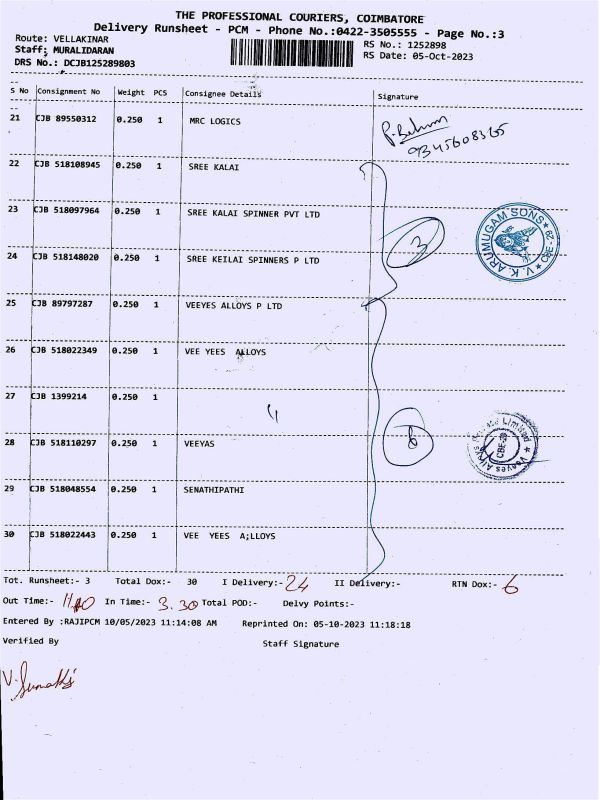 THE PROFESSIONAL COURIERS, COIMBATORE
Delivery Runsheet - PCM - Phone No.:0422-3505555 - Page No.:3
Route: VELLAKINAR
RS No.: 1252898
Staff: MURALIDARAN
RS Date: 05-Oct-2023
DRS No.: DCJB125289803
S No Consignment No Weight PCS Consignee Details Signature
21 CJB 89550312 0.250 1 MRC LOGICS
9345608365
22 CJB 518108945 0.250 1 SREE KALAI
23 CJB 518097964 0.250 1 SREE KALAI SPINNER PVT LTD
3
V.K. ARUMUGAM SONS ★ CBE - 29 ★
24 CJB 518148020 0.250 1 SREE KEILAI SPINNERS P LTD
25 CJB 89797287 0.250 1 VEEYES ALLOYS P LTD
26 CJB 518022349 0.250 1 VEE YEES ALLOYS
27 CJB 1399214 0.250 1
28 CJB 518110297 0.250 1 VEEYAS
6
Veeyes Alloys Limited ★ CBE-29
29 CJB 518048554 0.250 1 SENATHIPATHI
30 CJB 518022443 0.250 1 VEE YEES A;LLOYS
Tot. Runsheet:- 3 Total Dox:- 30 I Delivery:- 24 II Delivery:- RTN Dox:- 6
Out Time:- In Time:- 3.30 Total POD:- Delvy Points:-
Entered By :RAJIPCM 10/05/2023 11:14:08 AM Reprinted On: 05-10-2023 11:18:18
Verified By Staff Signature